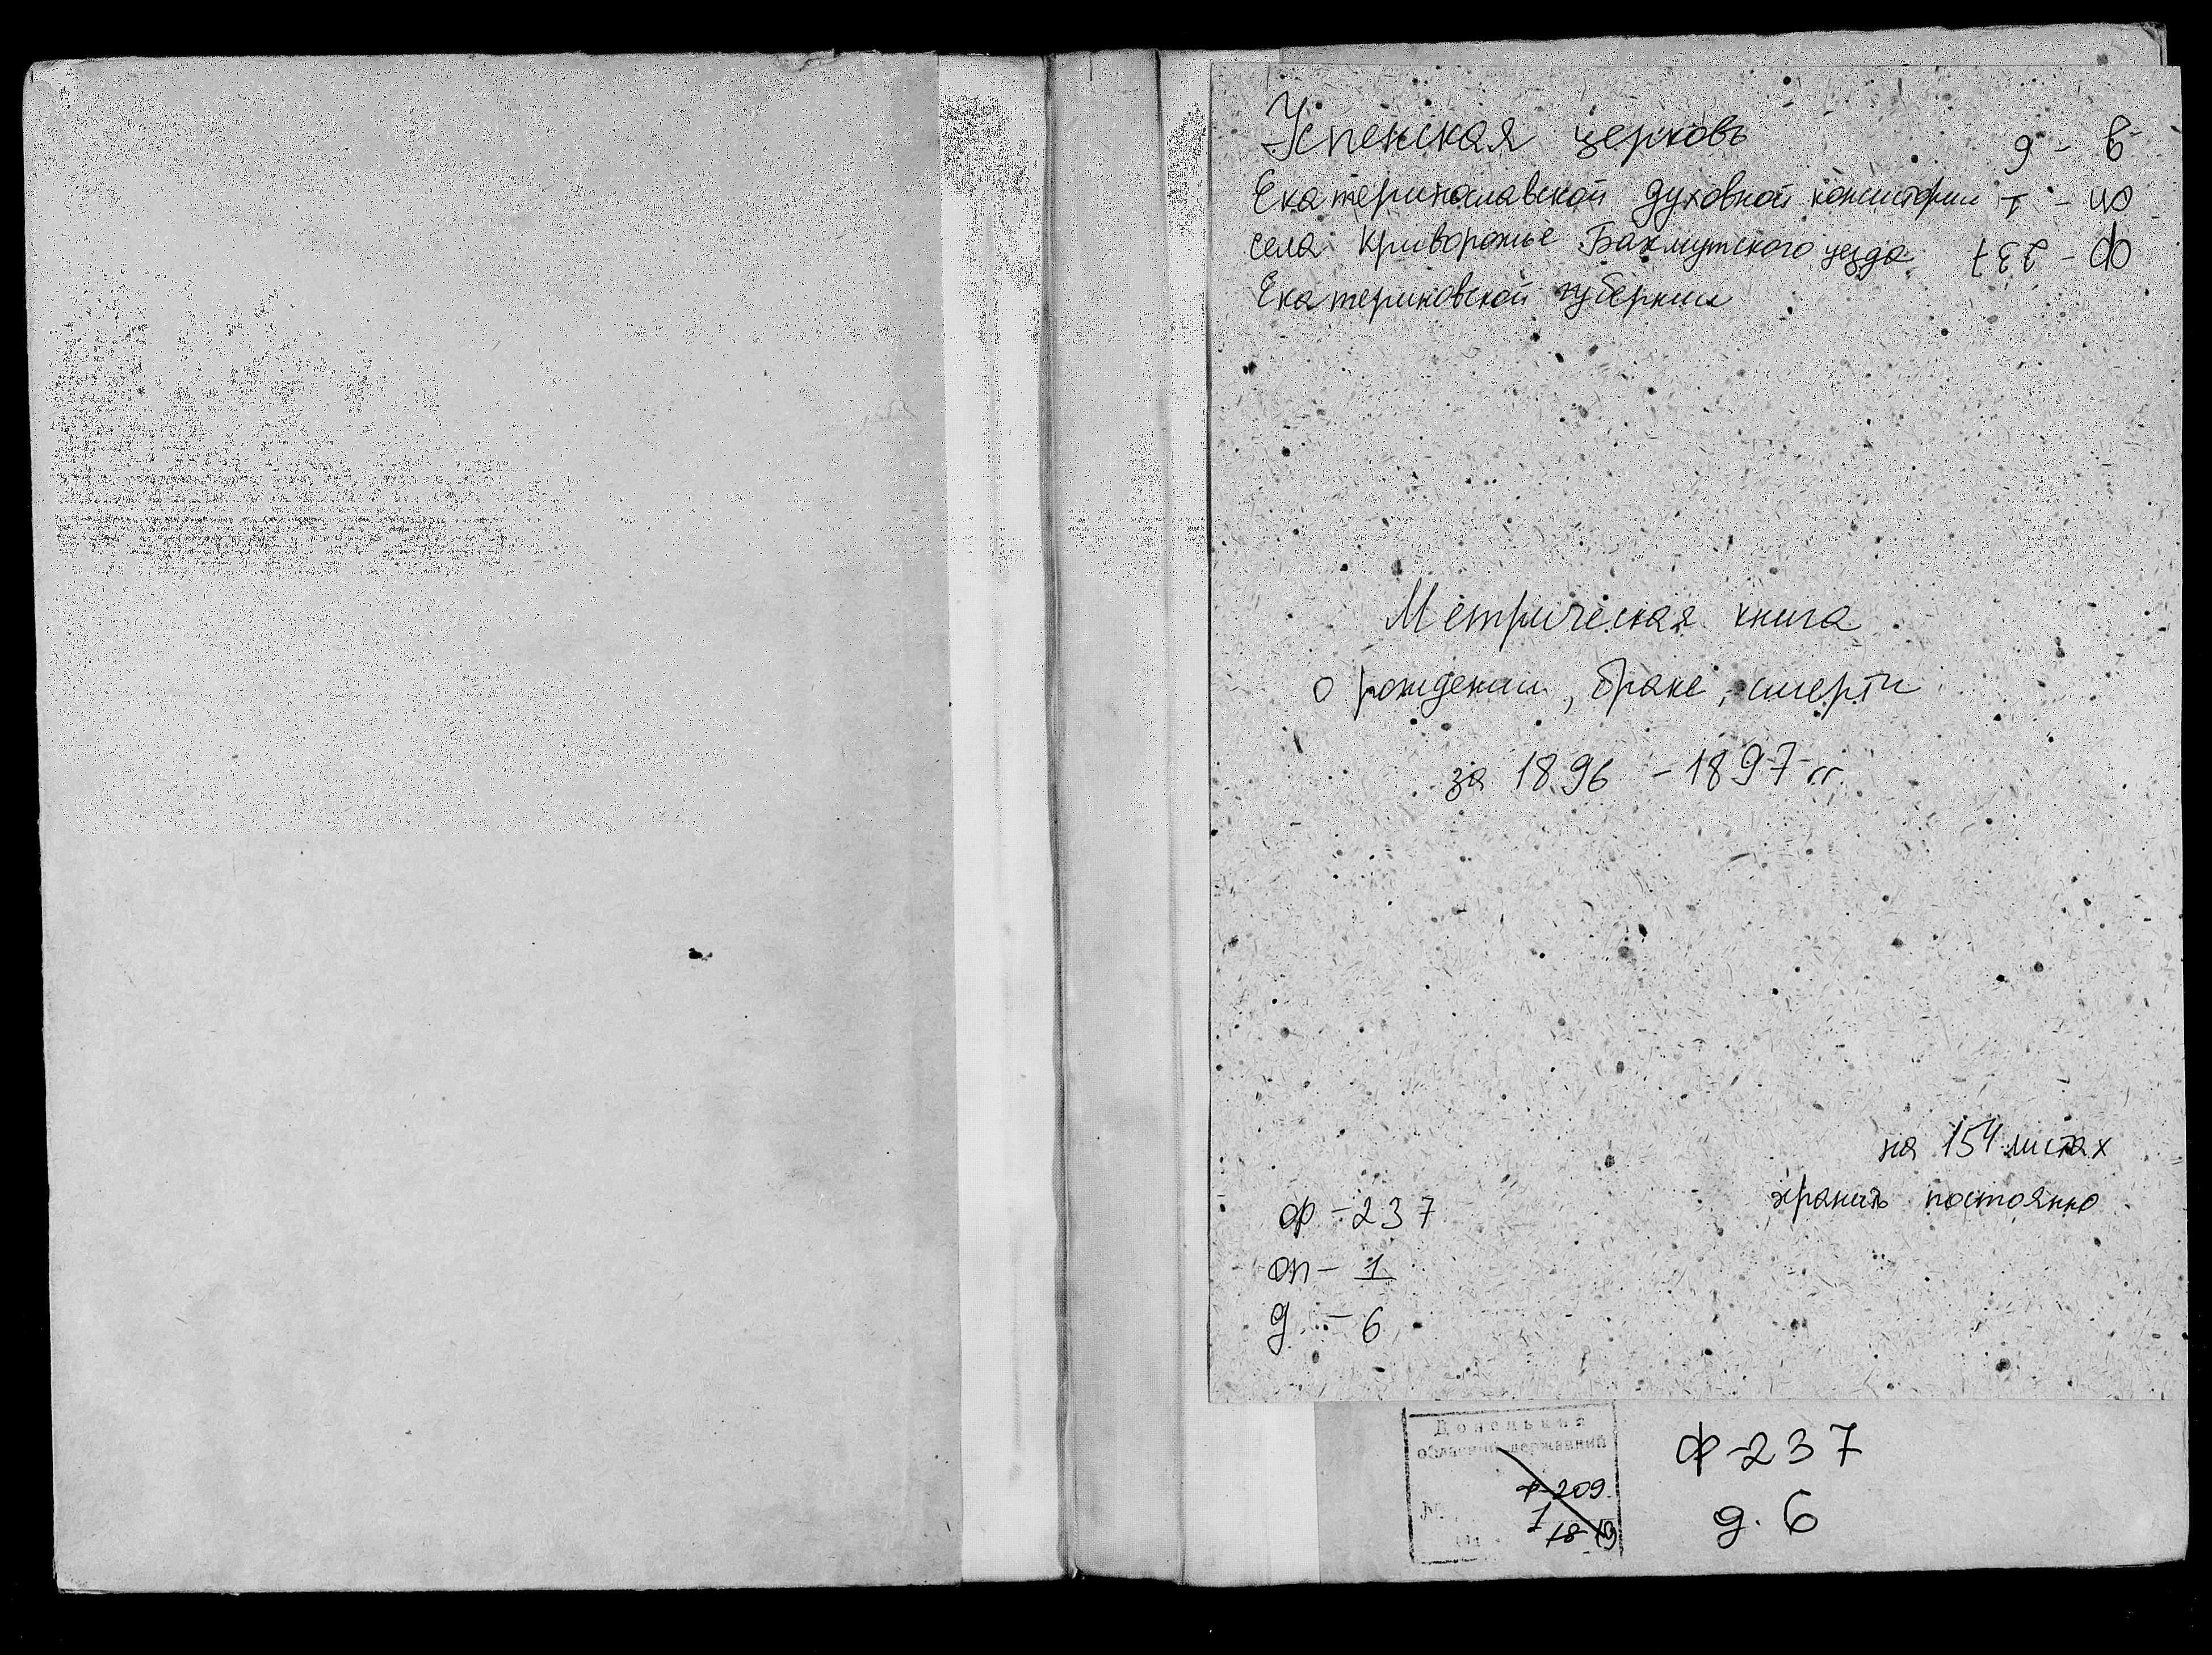 Успенская церковь
Екатеринославской духовной консистории
села Криворожье Бахмутского уезда
Екатериновской губернии
ф - 237
оп - 1
д - 6
Метрическая книга
о рождении, браке, смерти
за 1896 - 1897 гг.
на 154 листах
хранить постоянно
ф - 237
оп - 1
д - 6
Донецький
обласний державний
ф-209
1
18-19
№
ф-237
д. 6